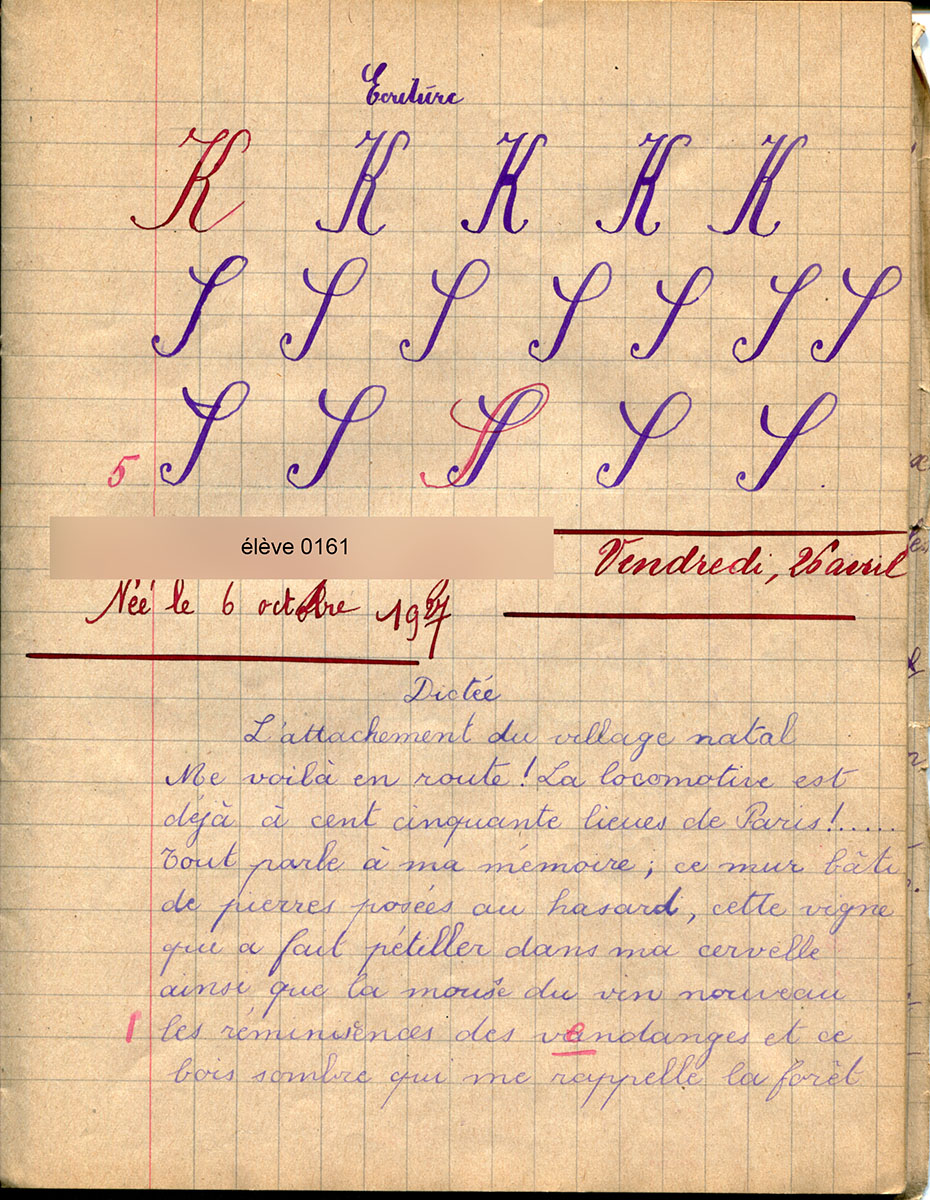 Ecriture
K K K K K
S S S S S S S
5 S S S S S
élève 0161
Vendredi, 26 avril
Néé le 6 octobre 1927
Dictée
L'attachement du village natal
Me voilà en route ! La locomotive est
déjà à cent cinquante lieues de Paris !......
Tout parle à ma mémoire ; ce mur bâti
de pierres posées au hasard, cette vigne
qui a fait pétiller dans ma cervelle
ainsi que la mousse du vin nouveau
1 les réminisences des vendanges et ce
bois sombre qui me rappelle la forêt